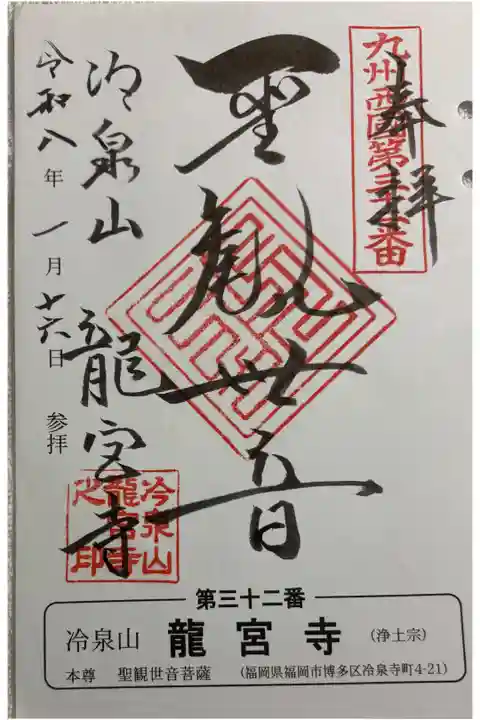 奉拝
九州西国第三十二番
聖観世音
冷泉山 龍宮寺
冷泉山
龍宮寺
之印
令和八年一月十六日 参拝
第三十二番
冷泉山 龍宮寺 (浄土宗)
本尊 聖観世音菩薩 (福岡県福岡市博多区冷泉寺町4-21)